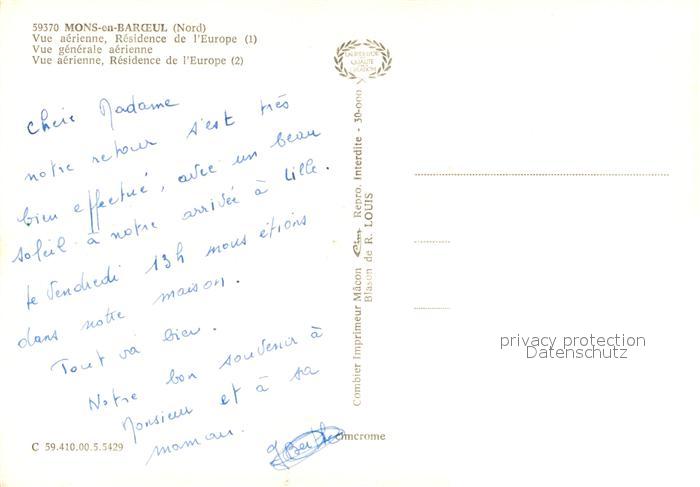 59370 MONS-en-BARŒUL (Nord)
Vue aérienne, Résidence de l'Europe (1)
Vue générale aérienne
Vue aérienne, Résidence de l'Europe (2)
Chère Madame
notre retour s'est très
bien effectué, avec un beau
soleil à notre arrivée à Lille.
le Vendredi 13h nous étions
dans notre maison.
Tout va bien.
Notre bon souvenir à
Monsieur et à sa
maman.
C 59.410.00.5.5429
Combier Imprimeur Mâcon Cim Repro. Interdite - 30-000
Blason de R. LOUIS
privacy protection
Datenschutz